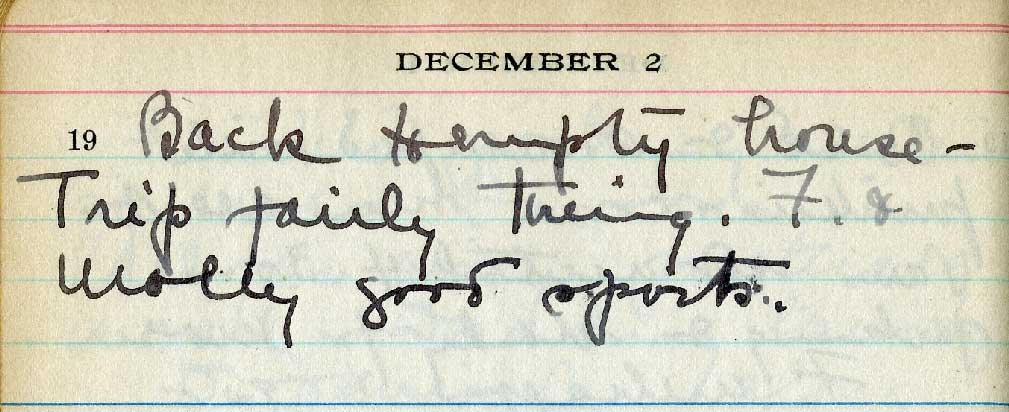 DECEMBER 2
19 Back to empty house -
Trip fairly tiring. F. &
Molly good sports.